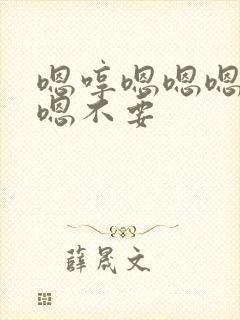 嗯哼嗯嗯嗯
嗯不要
薛晟文